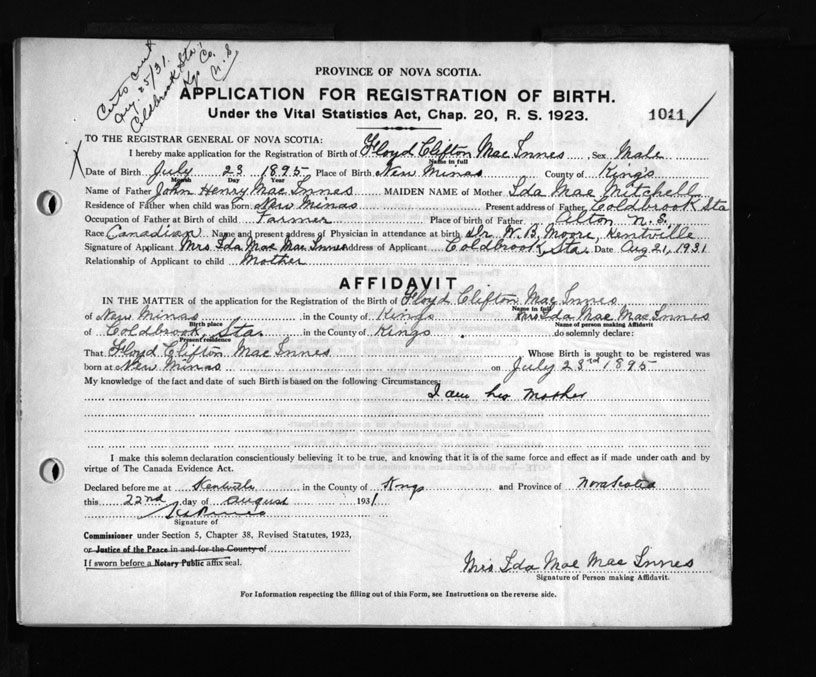 Aug. 25/31.
Coldbrook Sta.,
Kgs Co.
N.S
PROVINCE OF NOVA SCOTIA.
APPLICATION FOR REGISTRATION OF BIRTH.
Under the Vital Statistics Act, Chap. 20, R. S. 1923.
1011
TO THE REGISTRAR GENERAL OF NOVA SCOTIA:
I hereby make application for the Registration of Birth of Floyd Clifton Mac Innes, Sex Male
Name in full
Date of Birth July 23 1895 Place of Birth New Minas County of Kings
Month Day Year
Name of Father John Henry Mac Innes MAIDEN NAME of Mother Ida Mae Mitchell
Residence of Father when child was born New Minas Present address of Father Coldbrook Sta
Occupation of Father at Birth of child Farmer Place of birth of Father Alton N.S.
Race Canadian Name and present address of Physician in attendance at birth Dr. W. B. Moore, Kentville
Signature of Applicant Mrs Ida Mae Mac Innes address of Applicant Coldbrook, Sta. Date Aug 21, 1931
Relationship of Applicant to child Mother
AFFIDAVIT
IN THE MATTER of the application for the Registration of the Birth of Floyd Clifton Mac Innes
Name in full
of New Minas in the County of Kings Mrs Ida Mae Mac Innes
Birth place Name of person making Affidavit
of Coldbrook, Sta. in the County of Kings do solemnly declare:
Present residence
That Floyd Clifton Mac Innes Whose Birth is sought to be registered was
born at New Minas on July 23rd 1895
My knowledge of the fact and date of such Birth is based on the following Circumstances:
I am his Mother
I make this solemn declaration conscientiously believing it to be true, and knowing that it is of the same force and effect as if made under oath and by
virtue of The Canada Evidence Act.
Declared before me at Kentville in the County of Kings and Province of Nova Scotia
this 22nd day of August 1931
Signature of
Commissioner under Section 5, Chapter 38, Revised Statutes, 1923,
or Justice of the Peace in and for the County of
If sworn before a Notary Public affix seal.
Mrs Ida Mae Mac Innes
Signature of Person making Affidavit.
For Information respecting the filling out of this Form, see Instructions on the reverse side.